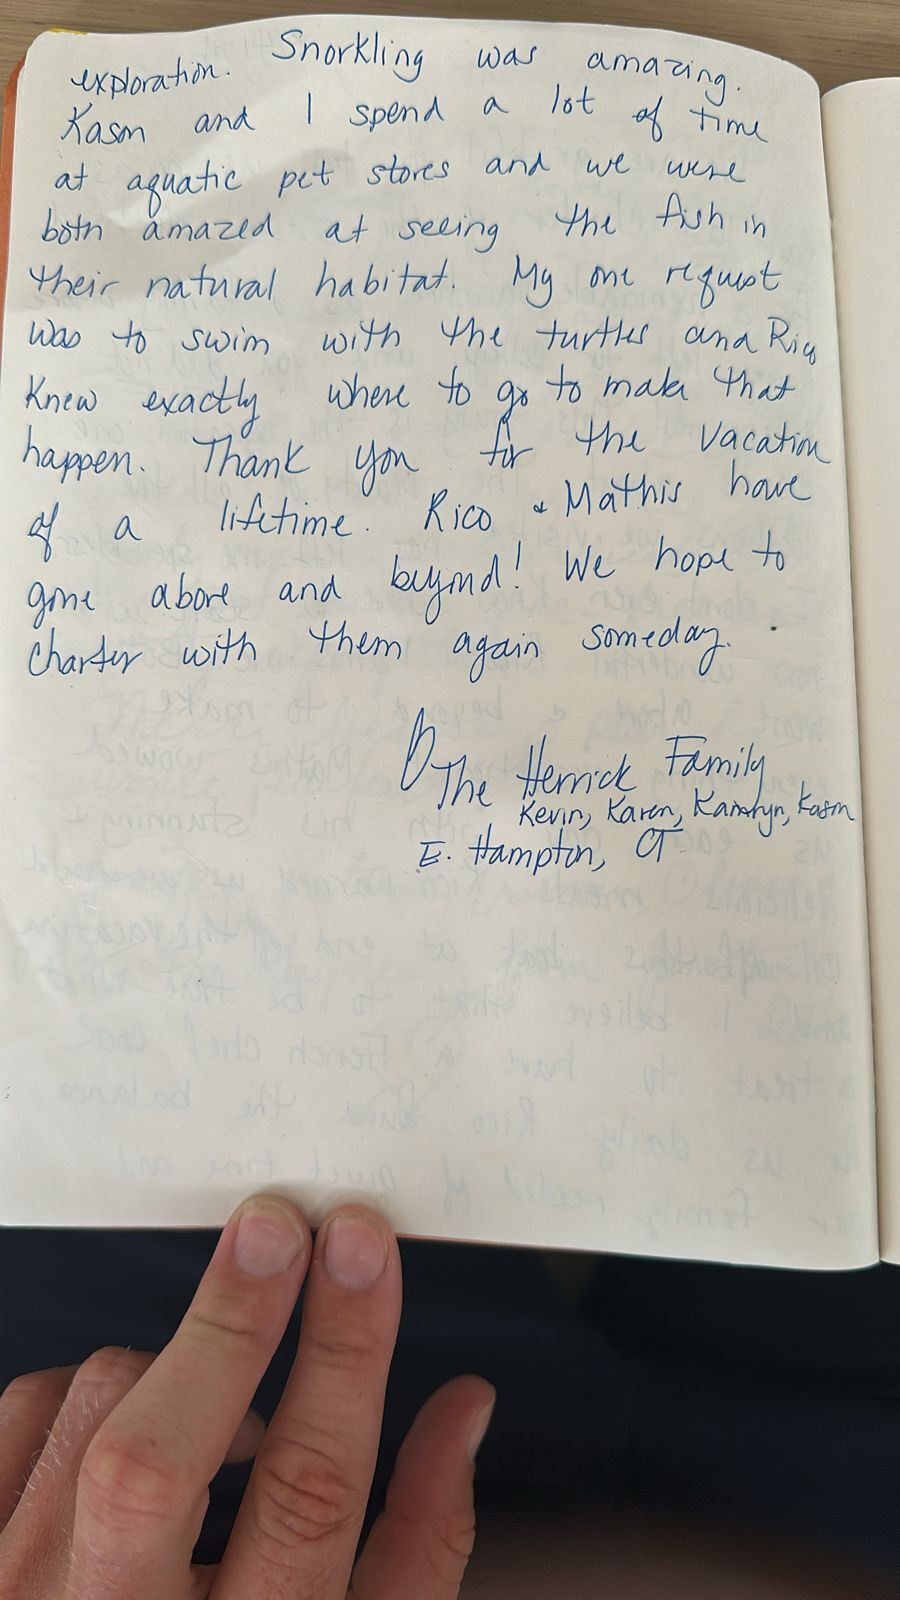 exploration. Snorkling was amazing.
Kason and I spend a lot of time
at aquatic pet stores and we were
both amazed at seeing the fish in
their natural habitat. My one request
was to swim with the turtles and Rico
Knew exactly where to go to make that
happen. Thank you for the vacation
of a lifetime. Rico & Mathis have
gone above and beyond! We hope to
charter with them again someday.
The Herrick Family
Kevin, Karen, Kamryn, Kason
E. Hampton, CT